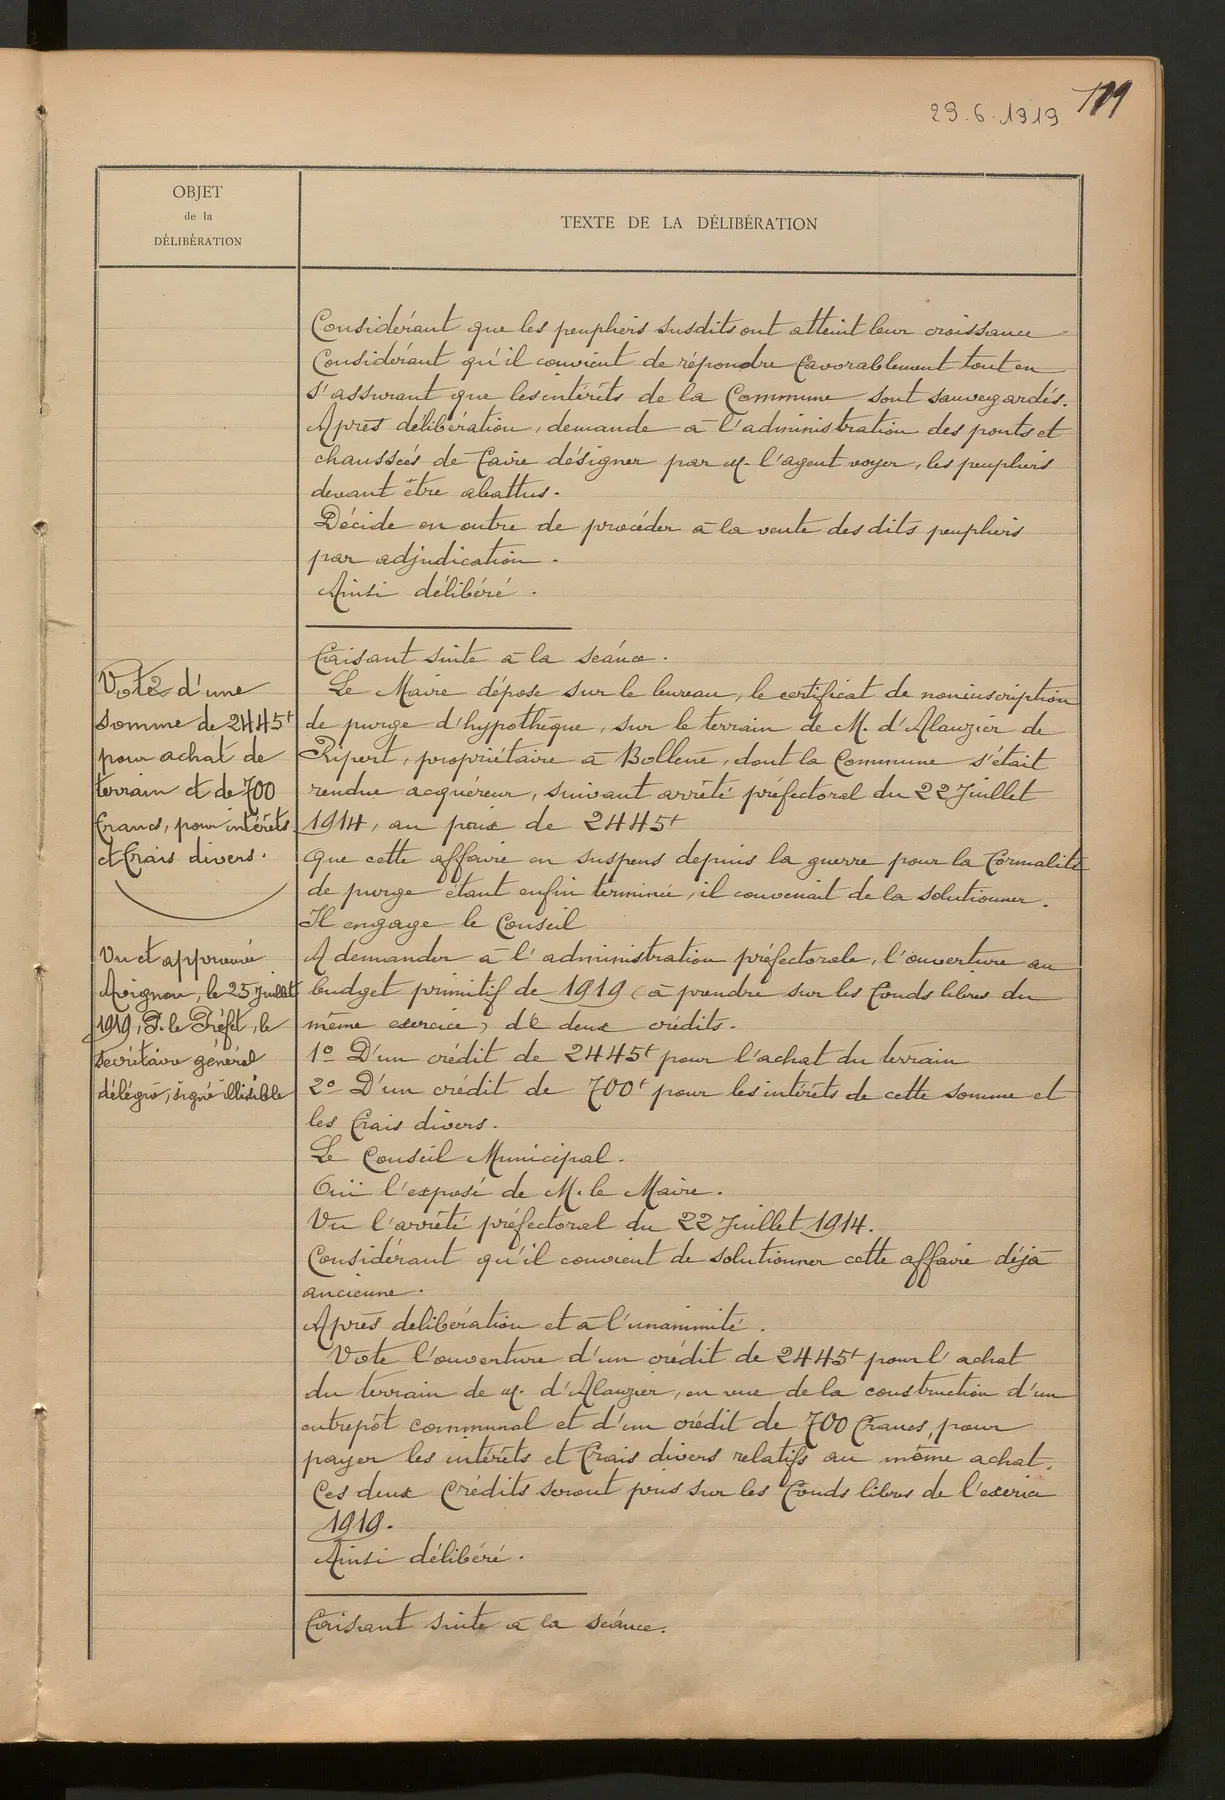 29.6.1919
OBJET
de la
DÉLIBÉRATION
TEXTE DE LA DÉLIBÉRATION
Considérant que les peupliers susdits ont atteint leur croissance
Considérant qu'il convient de répondre favorablement tout en
s'assurant que les intérêts de la Commune sont sauvegardés.
Après délibération, demande à l'administration des ponts et
chaussées de faire désigner par M. l'agent voyer, les peupliers
devant être abattus.
Décide en outre de procéder à la vente des dits peupliers
par adjudication.
Ainsi délibéré.
Faisant suite à la séance.
Vote d'une
somme de 2445f
pour achat de
terrain et de 700
francs, pour intérêts
et frais divers.
Le Maire dépose sur le bureau, le certificat de non inscription
de purge d'hypothèque, sur le terrain de M. d'Alauzier de
Ripert, propriétaire à Bollène, dont la Commune s'était
rendue acquéreur, suivant arrêté préfectoral du 22 Juillet
1914, au prix de 2445f
Que cette affaire en suspens depuis la guerre pour la formalité
de purge étant enfin terminée, il convenait de la solutionner.
Il engage le Conseil
Vu et approuvé
Avignon, le 25 Juillet
1919, P. le Préfet, le
secrétaire général
délégué, signé illisible
A demander à l'administration préfectorale, l'ouverture au
budget primitif de 1919 (à prendre sur les fonds libres du
même exercice) de deux crédits.
1º D'un crédit de 2445f pour l'achat du terrain
2º D'un crédit de 700f pour les intérêts de cette somme et
les frais divers.
Le Conseil Municipal.
Ouï l'exposé de M. le Maire.
Vu l'arrêté préfectoral du 22 Juillet 1914.
Considérant qu'il convient de solutionner cette affaire déjà
ancienne.
Après délibération et à l'unanimité.
Vote l'ouverture d'un crédit de 2445f pour l'achat
du terrain de M. d'Alauzier, en vue de la construction d'un
entrepôt communal et d'un crédit de 700 francs, pour
payer les intérêts et frais divers relatifs au même achat.
Ces deux crédits seront pris sur les fonds libres de l'exercice
1919.
Ainsi délibéré.
Faisant suite à la séance.